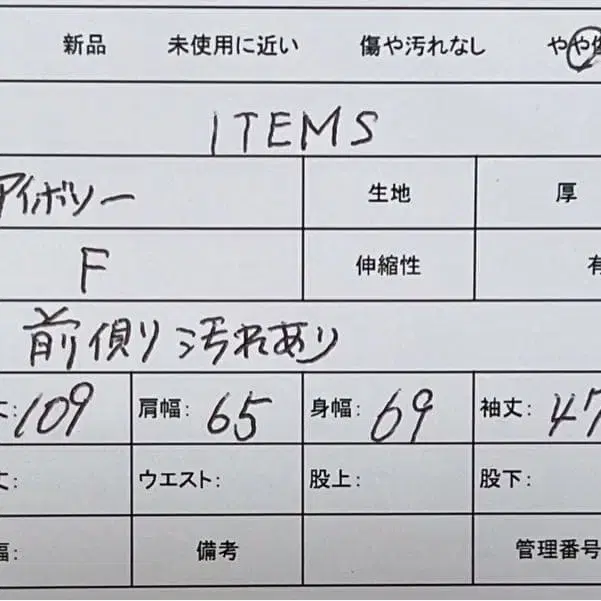 新品 未使用に近い 傷や汚れなし やや傷
ITEMS
アイボリー 生地 厚
F 伸縮性 有
前側り汚れあり
丈: 109 肩幅: 65 身幅: 69 袖丈: 47
丈: ウエスト: 股上: 股下:
幅: 備考 管理番号